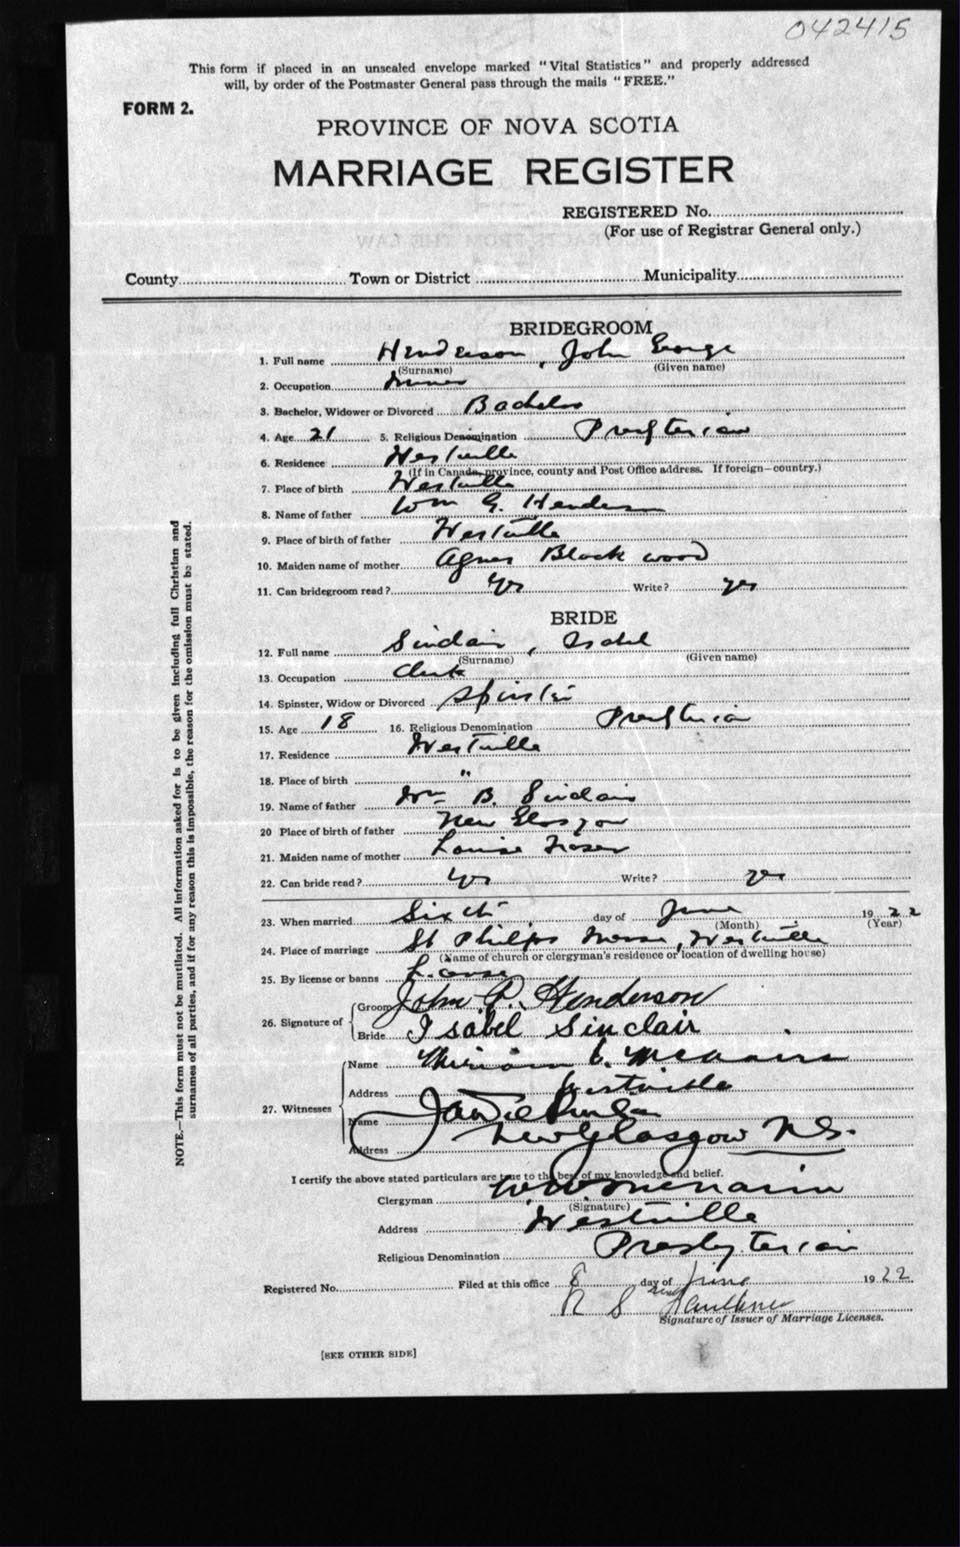 042415
This form if placed in an unsealed envelope marked "Vital Statistics" and properly addressed
will, by order of the Postmaster General pass through the mails "FREE."
FORM 2.
PROVINCE OF NOVA SCOTIA
MARRIAGE REGISTER
REGISTERED No.
(For use of Registrar General only.)
County Town or District Municipality
BRIDEGROOM
1. Full name Henderson, John George
(Surname) (Given name)
2. Occupation Miner
3. Bachelor, Widower or Divorced Bachelor
4. Age 21 5. Religious Denomination Presyterian
6. Residence Westville
(If in Canada, province, county and Post Office address. If foreign—country.)
7. Place of birth Westville
8. Name of father Wm G. Henderson
9. Place of birth of father Westville
10. Maiden name of mother Agnes Blackwood
11. Can bridegroom read? yes Write? yes
BRIDE
12. Full name Sinclair, Isabel
(Surname) (Given name)
13. Occupation Clerk
14. Spinster, Widow or Divorced Spinster
15. Age 18 16. Religious Denomination Presyterian
17. Residence Westville
18. Place of birth "
19. Name of father Wm B. Sinclair
20 Place of birth of father New Glasgow
21. Maiden name of mother Louise Fraser
22. Can bride read? yes Write? yes
23. When married Sixth day of June 1922
(Month) (Year)
24. Place of marriage St Philips Manse, Westville
(Name of church or clergyman's residence or location of dwelling house)
25. By license or banns
26. Signature of
Groom John Henderson
Bride Isabel Sinclair
27. Witnesses
Name
Address Westville
Name
Address New Glasgow N.S.
I certify the above stated particulars are true to the best of my knowledge and belief.
Clergyman
(Signature)
Address Westville
Religious Denomination Presbyterian
Registered No. Filed at this office 8 day of June 1922
R S Faulkner
Signature of Issuer of Marriage Licenses.
[SEE OTHER SIDE]
NOTE.—This form must not be mutilated. All information asked for is to be given including full Christian and
surnames of all parties, and if for any reason this is impossible, the reason for the omission must be stated.